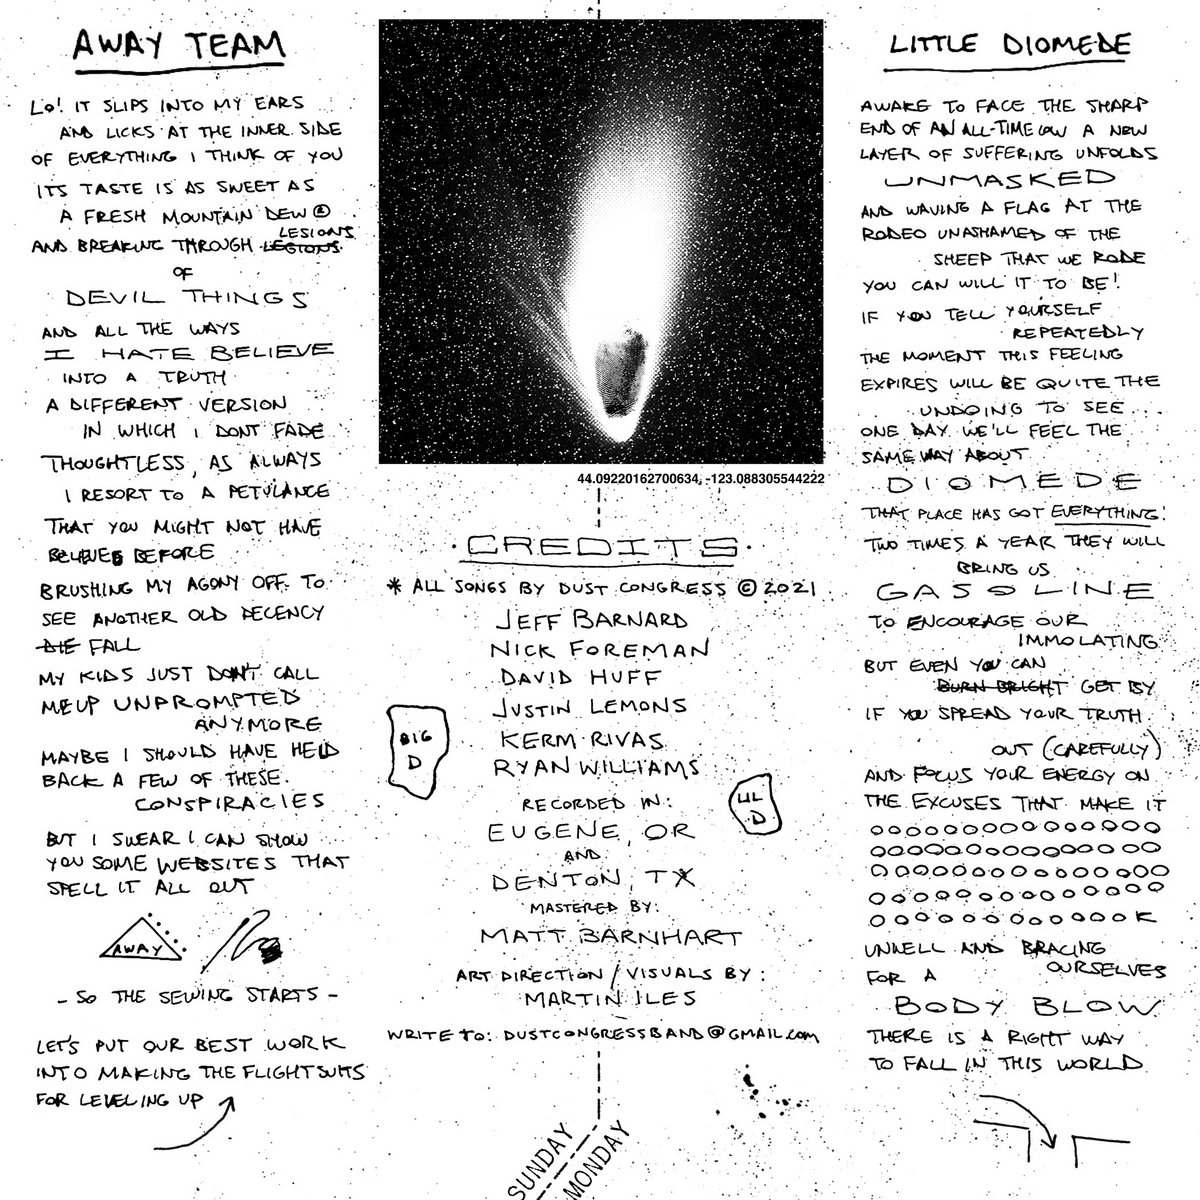 AWAY TEAM
LO! IT SLIPS INTO MY EARS
AND LICKS AT THE INNER SIDE
OF EVERYTHING I THINK OF YOU
ITS TASTE IS AS SWEET AS
A FRESH MOUNTAIN DEW ®
LESIONS
AND BREAKING THROUGH LEGIONS
OF
DEVIL THINGS
AND ALL THE WAYS
I HATE BELIEVE
INTO A TRUTH
A DIFFERENT VERSION
IN WHICH I DONT FADE
THOUGHTLESS, AS ALWAYS
I RESORT TO A PETULANCE
THAT YOU MIGHT NOT HAVE
BELIEVED BEFORE
BRUSHING MY AGONY OFF TO
SEE ANOTHER OLD DECENCY
DIE FALL
MY KIDS JUST DON'T CALL
ME UP UNPROMPTED
ANYMORE
MAYBE I SHOULD HAVE HELD
BACK A FEW OF THESE
CONSPIRACIES
BUT I SWEAR I CAN SHOW
YOU SOME WEBSITES THAT
SPELL IT ALL OUT
AWAY
- SO THE SEWING STARTS -
LET'S PUT OUR BEST WORK
INTO MAKING THE FLIGHTSUITS
FOR LEVELING UP
44.09220162700634, -123.088305544222
·CREDITS·
* ALL SONGS BY DUST CONGRESS © 2021
JEFF BARNARD
NICK FOREMAN
DAVID HUFF
JUSTIN LEMONS
KERM RIVAS
RYAN WILLIAMS
BIG
D
LIL
D
RECORDED IN:
EUGENE, OR
AND
DENTON, TX
MASTERED BY:
MATT BARNHART
ART DIRECTION / VISUALS BY:
MARTIN ILES
WRITE TO: DUSTCONGRESSBAND@GMAIL.COM
SUNDAY
MONDAY
LITTLE DIOMEDE
AWAKE TO FACE THE SHARP
END OF AN ALL-TIME LOW A NEW
LAYER OF SUFFERING UNFOLDS
UNMASKED
AND WAVING A FLAG AT THE
RODEO UNASHAMED OF THE
SHEEP THAT WE RODE
YOU CAN WILL IT TO BE!
IF YOU TELL YOURSELF
REPEATEDLY
THE MOMENT THIS FEELING
EXPIRES WILL BE QUITE THE
UNDOING TO SEE...
ONE DAY WE'LL FEEL THE
SAME WAY ABOUT
DIOMEDE
THAT PLACE HAS GOT EVERYTHING!
TWO TIMES A YEAR THEY WILL
BRING US
GASOLINE
TO ENCOURAGE OUR
IMMOLATING
BUT EVEN YOU CAN
BURN BRIGHT GET BY
IF YOU SPREAD YOUR TRUTH
OUT (CAREFULLY)
AND FOCUS YOUR ENERGY ON
THE EXCUSES THAT MAKE IT
OOOOOOOOOOOOOOO
OOOOOOOOOOOOOOO
OOOOOOOOOOOOOOOO
OOOOOOOOOOOOOOO
OOOOOOOOOOOOOK
UNWELL AND BRACING
OURSELVES
FOR A
BODY BLOW
THERE IS A RIGHT WAY
TO FALL IN THIS WORLD